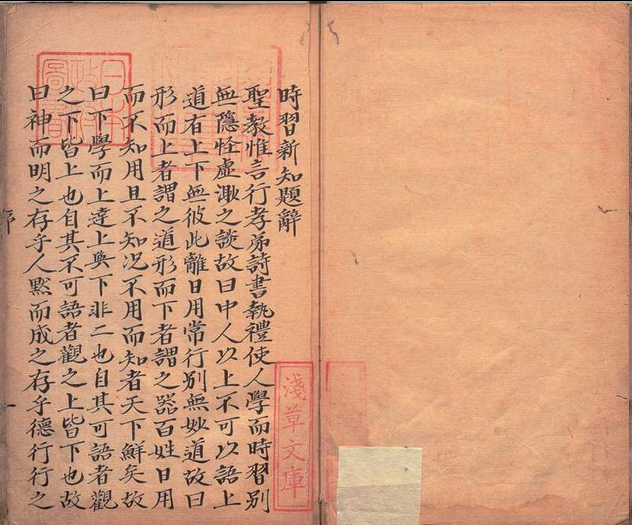 時習新知題辭
聖教惟言行孝弟詩書執禮使人學而時習別
無隱怪虛渺之談故曰中人以上不可以語上
道有上下無彼此離日用常行別無妙道故曰
形而上者謂之道形而下者謂之器百姓日用
而不知用且不知況不用而知者天下鮮矣故
曰下學而上達上與下非二也自其可語者觀
之下皆上也自其不可語者觀之上皆下也故
曰神而明之存乎人默而成之存乎德行行之
序
一
淺草文庫